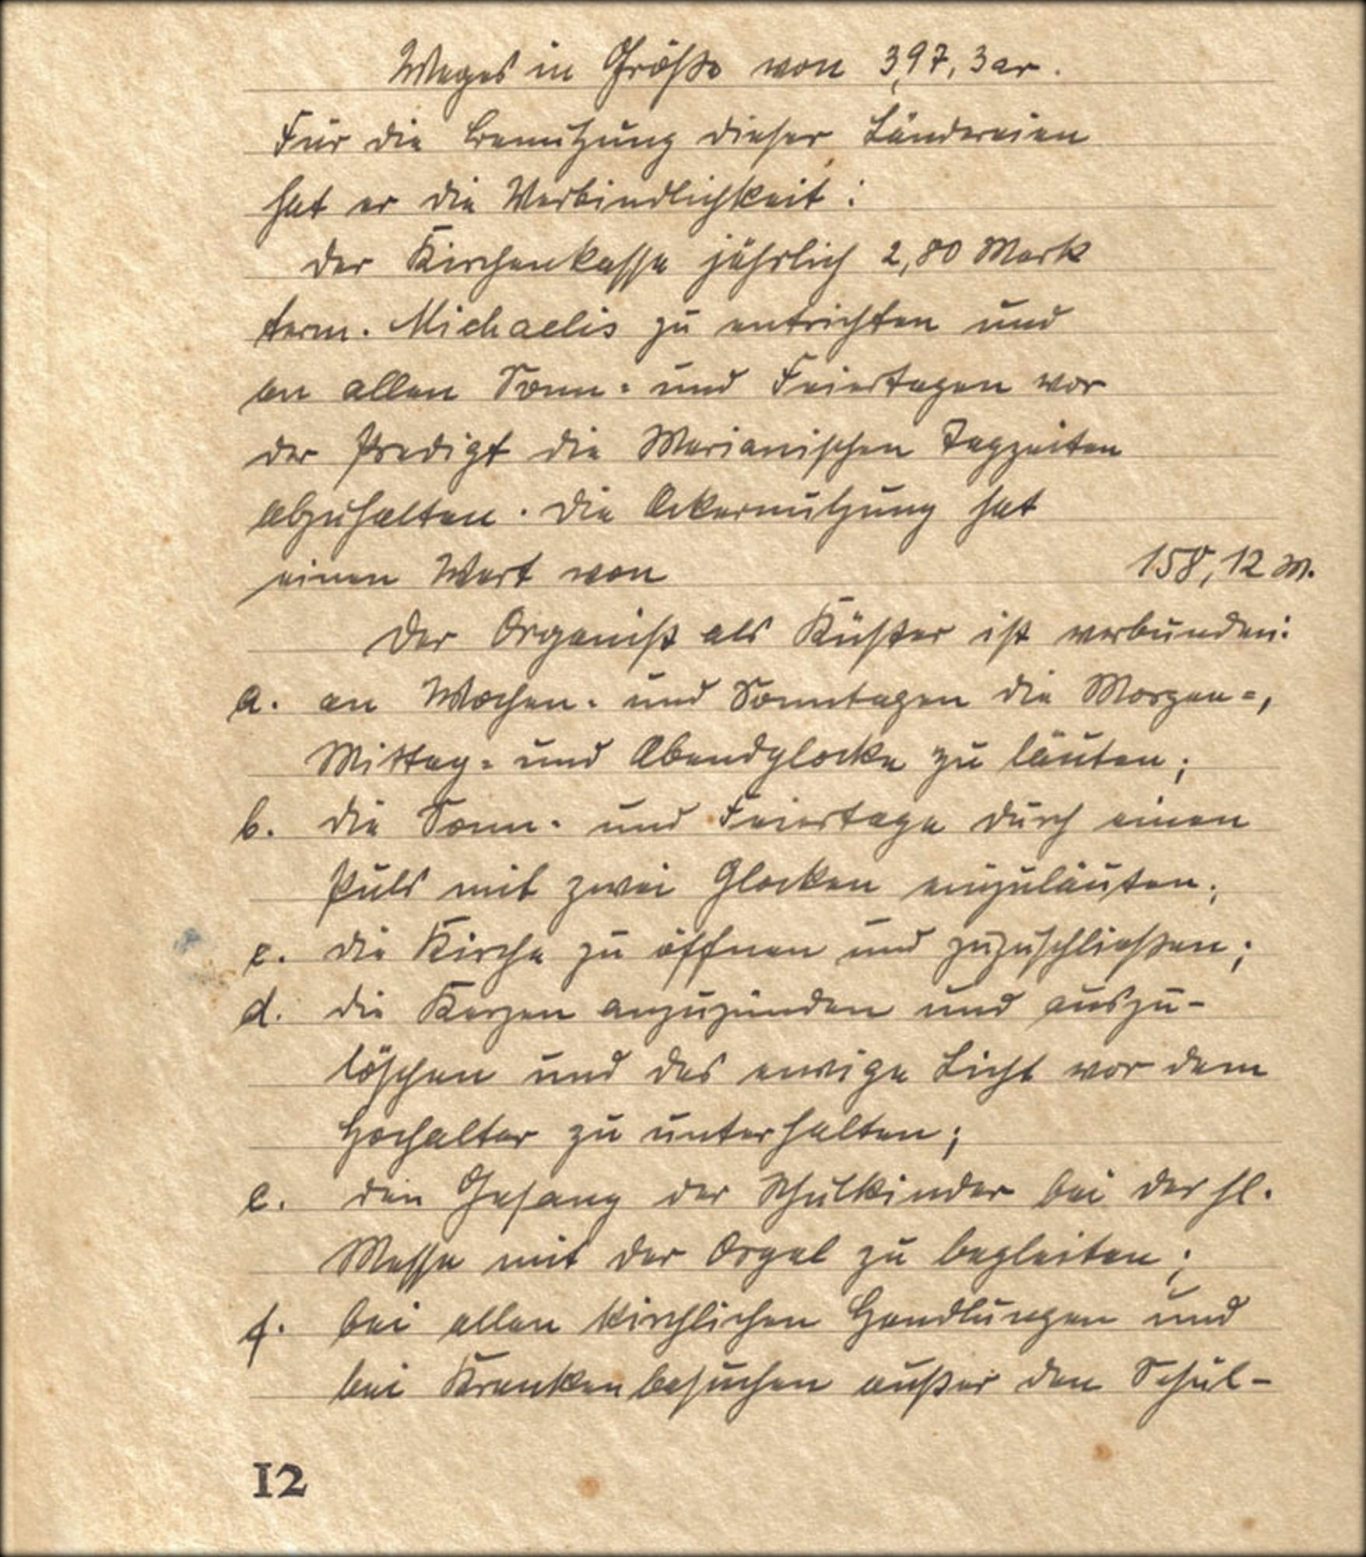 Weges in Größe von 3,97,3 ar.
Für die Benutzung dieser Ländereien
hat er die Verbindlichkeit:
der Kirchenkasse jährlich 2,80 Mark
term. Michaelis zu entrichten und
an allen Sonn- und Feiertagen vor
der Predigt die Marianischen Tagzeiten
abzuhalten. Die Ackernutzung hat
einen Wert von 158,12 M.
Der Organist als Küster ist verbunden:
a. an Wochen- und Sonntagen die Morgen-,
Mittag- und Abendglocke zu läuten;
b. die Sonn- und Feiertage durch einen
Puls mit zwei Glocken einzuläuten;
c. die Kirche zu öffnen und zuzuschließen;
d. die Kerzen anzuzünden und auszu-
löschen und das ewige Licht vor dem
Hochaltar zu unterhalten;
e. den Gesang der Schulkinder bei der hl.
Messe mit der Orgel zu begleiten;
f. bei allen kirchlichen Handlungen und
bei Krankenbesuchen außer den Schul-
12